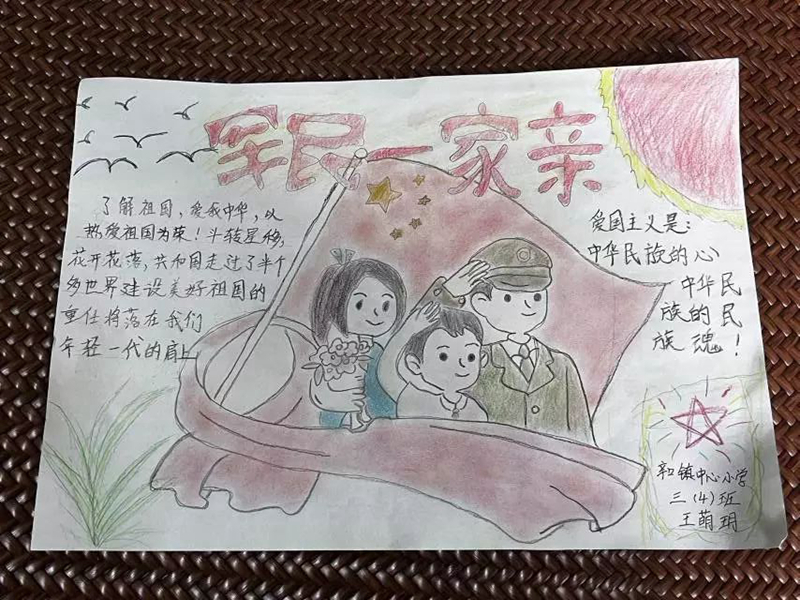 军民一家亲
了解祖国，爱我中华，以
热爱祖国为荣！斗转星移，
花开花落，共和国走过了半个
多世界建设美好祖国的
重任将落在我们
年轻一代的肩上
爱国主义是：
中华民族的心
中华民
族的民
族魂！
镇中心小学
三（4）班
王萌玥